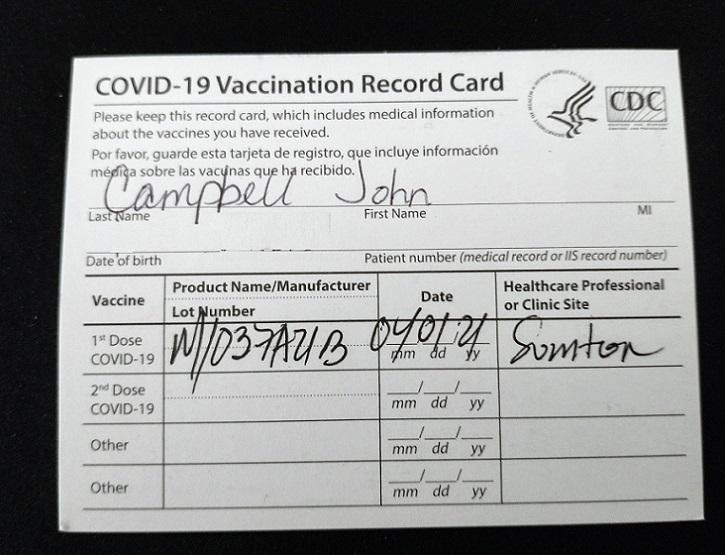 COVID-19 Vaccination Record Card
CDC
Please keep this record card, which includes medical information
about the vaccines you have received.
Por favor, guarde esta tarjeta de registro, que incluye información
médica sobre las vacunas que ha recibido.
Campbell John
Last Name First Name MI
Date of birth Patient number (medical record or IIS record number)
Vaccine Product Name/Manufacturer Date Healthcare Professional
Lot Number or Clinic Site
1st Dose 04/01/21
COVID-19 mm dd yy
2nd Dose
COVID-19 mm dd yy
Other mm dd yy
Other mm dd yy